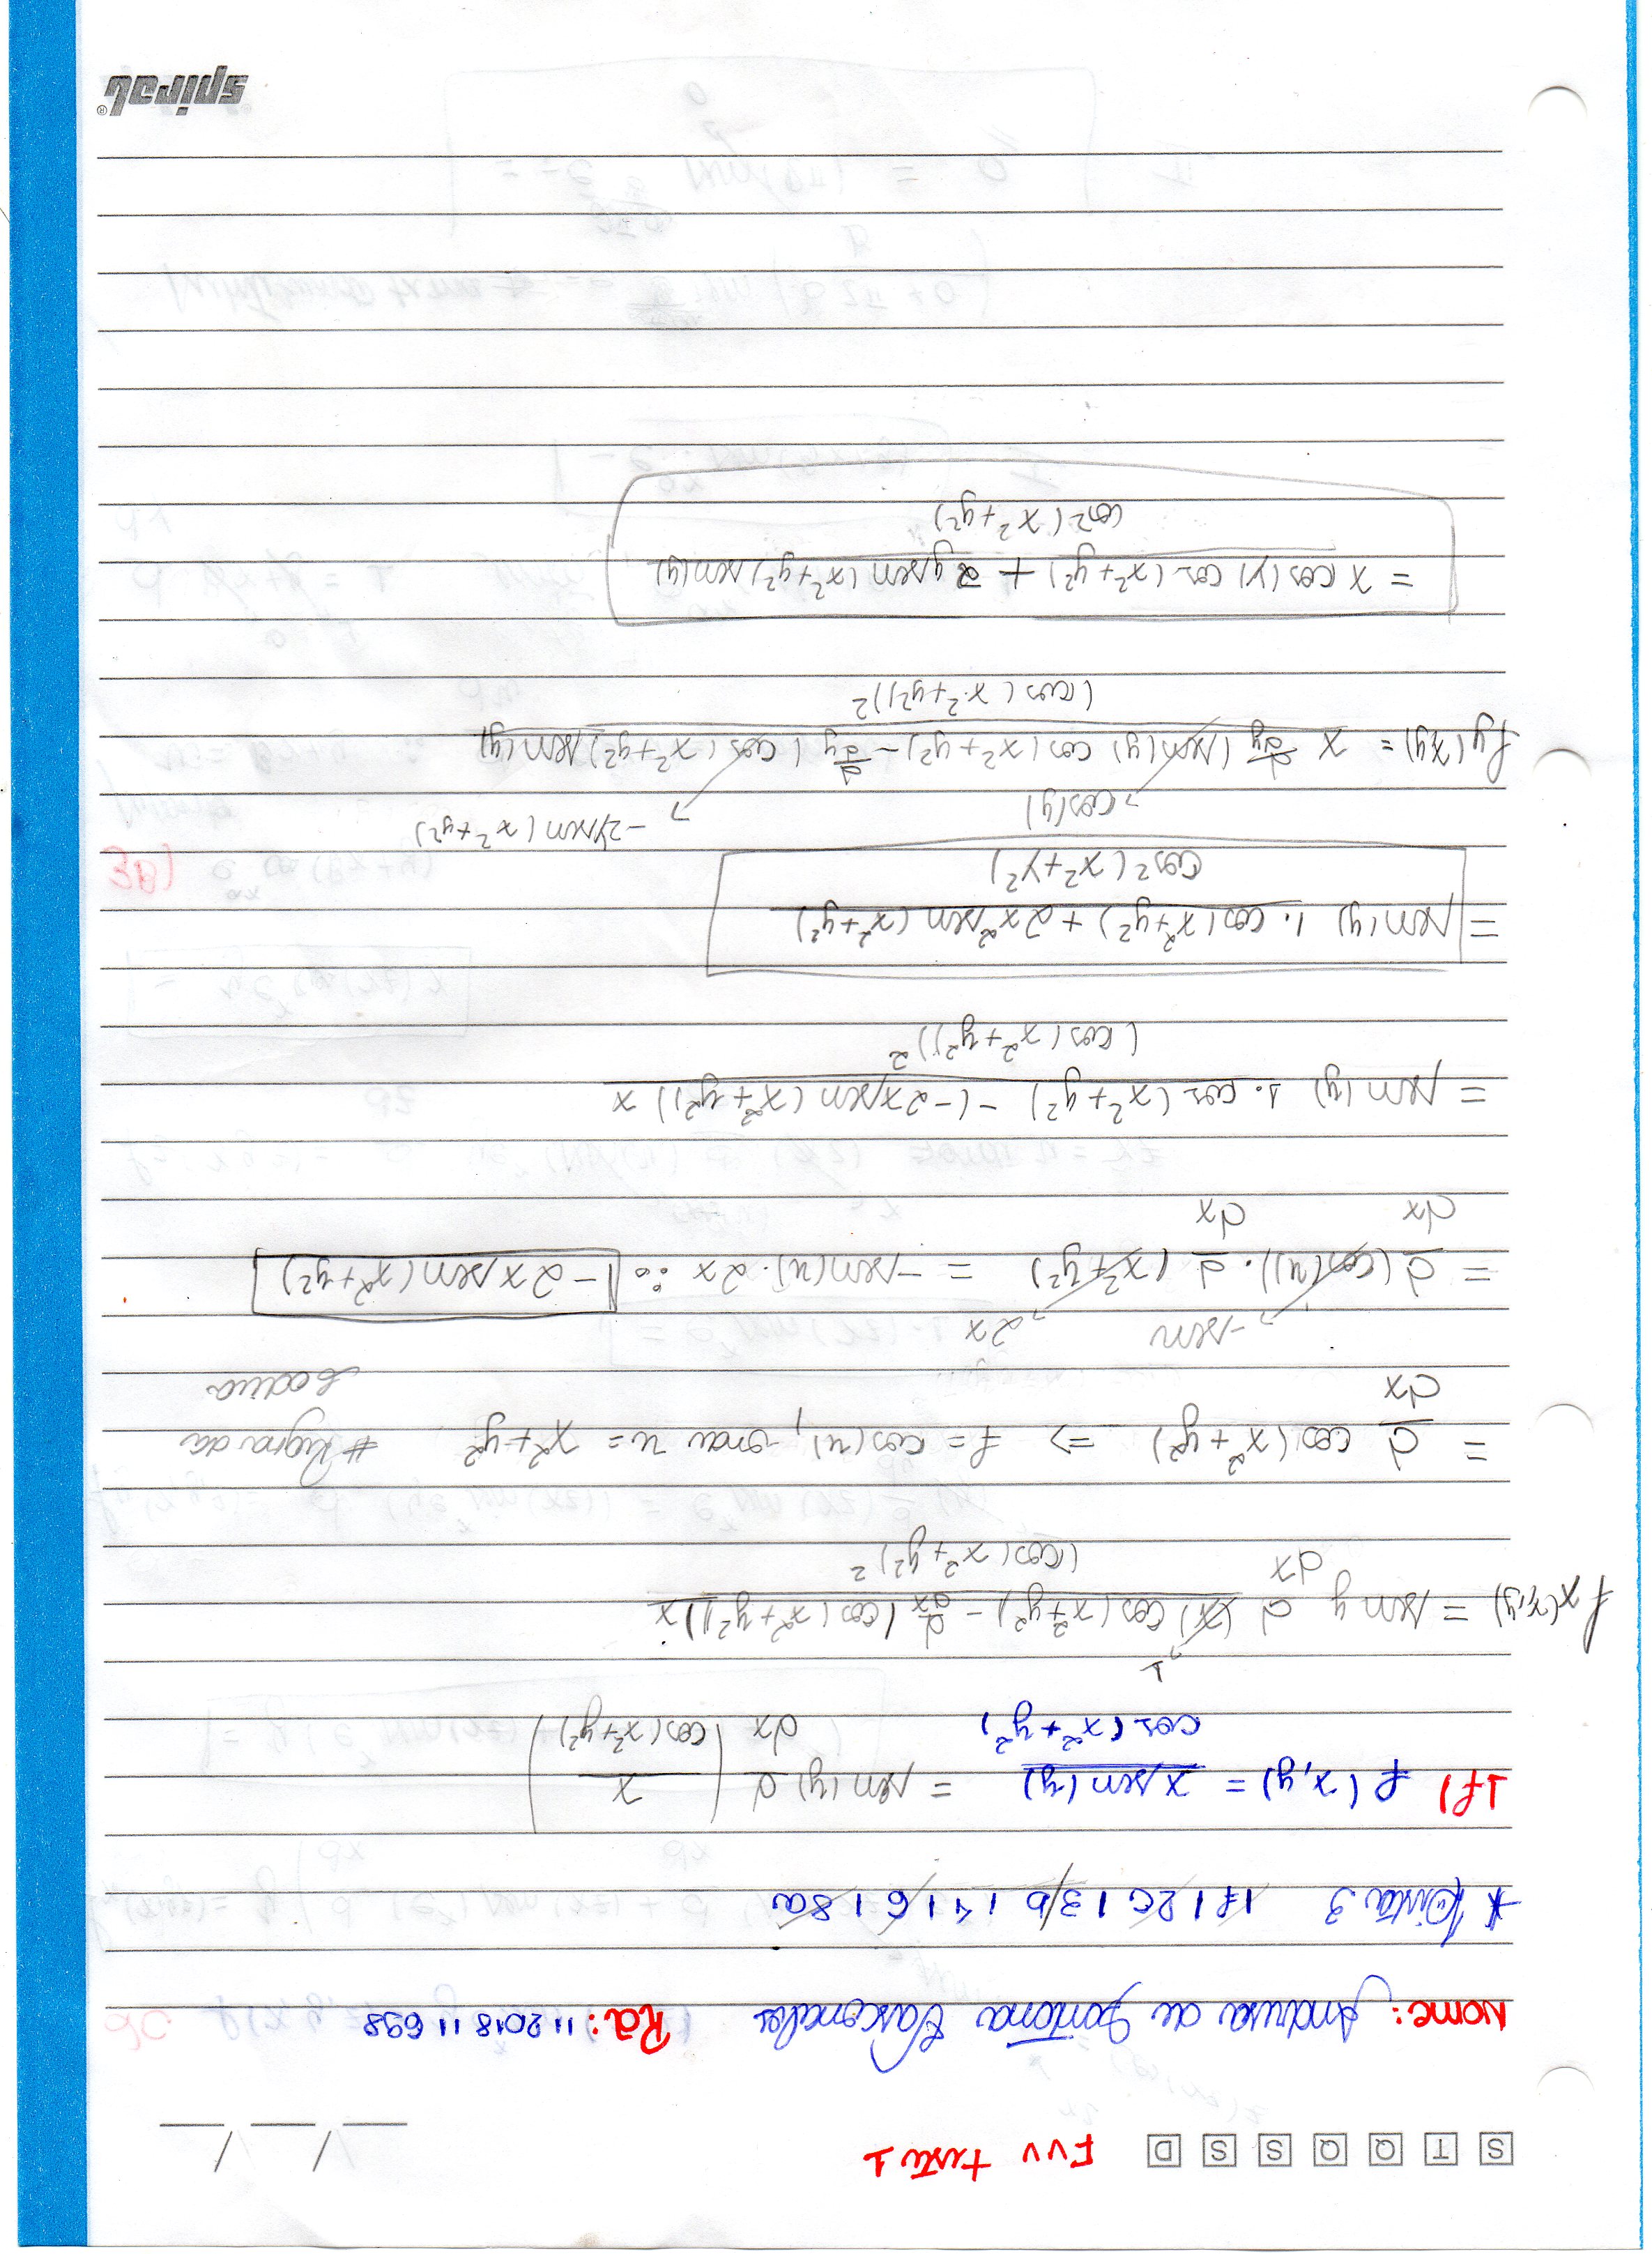 S T Q Q S S D FVV teste 1 __/__/__
Nome: Andresa de Santana Vasconcelos Ra: 11 2018 11 698
* Lista 3 1f | 2c | 3b | 4 | 6 | 8a
1f) f(x,y) = x sen(y) / cos(x²+y²) = sen(y) d/dx ( x / cos(x²+y²) )
1
fx(x,y) = sen y d/dx (x) cos(x²+y²) - d/dx (cos(x²+y²)) x / (cos(x²+y²)²
= d/dx cos(x²+y²) => f = cos(u), onde u = x²+y² # Regra da
cadeia
-sen 2x
= d/dx (cos(u)) . d/dx (x²+y²) = -sen(u) . 2x ∴ -2x sen(x²+y²)
= sen(y) 1. cos(x²+y²) -(-2x sen(x²+y²)) x / (cos(x²+y²))²
= sen(y) 1. cos(x²+y²) + 2x² sen(x²+y²) / cos²(x²+y²)
cos(y) -2y sen(x²+y²)
fy(x,y) = x d/dy (sen(y) cos(x²+y²) - d/dy (cos(x²+y²) sen(y) / (cos(x²+y²))²
= x cos(y) cos(x²+y²) + 2 y sen(x²+y²) sen(y) / cos²(x²+y²)
spiral®